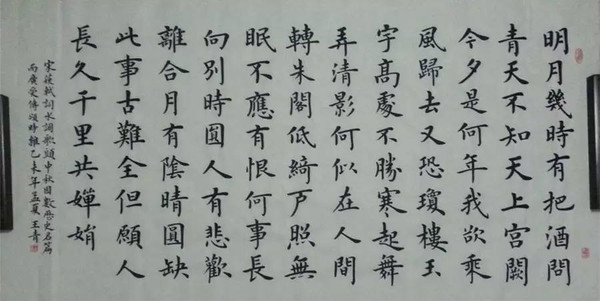 明月幾時有把酒問
青天不知天上宮闕
今夕是何年我欲乘
風歸去又恐瓊樓玉
宇高處不勝寒起舞
弄清影何似在人間
轉朱閣低綺戶照無
眠不應有恨何事長
向別時圓人有悲歡
離合月有陰晴圓缺
此事古難全但願人
長久千里共嬋娟
宋蘇軾詞水調歌頭中秋因數歷史名篇
而廣受傳頌時維乙未年孟夏王青